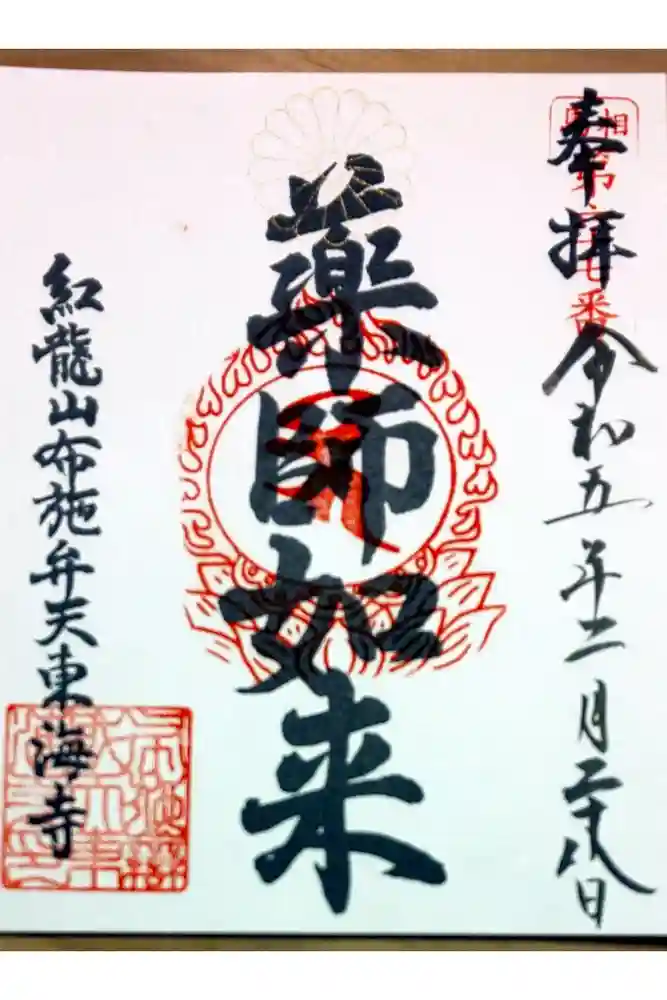 奉拝 令和五年二月二十八日
薬師如来
紅龍山布施弁天東海寺